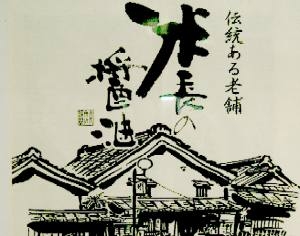 伝統ある老舗
氷長の
醤油